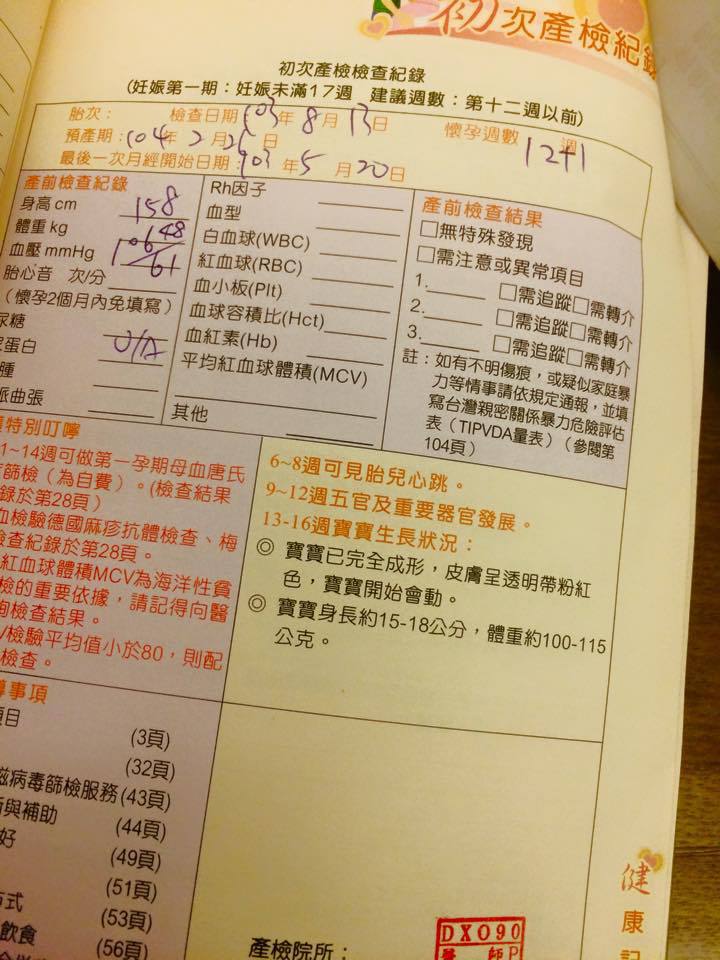 初次產檢紀錄
初次產檢檢查紀錄
(妊娠第一期：妊娠未滿17週 建議週數：第十二週以前)
胎次： 檢查日期：103年8月13日 懷孕週數 12+1 週
預產期：104年2月26日
最後一次月經開始日期：103年5月20日
產前檢查紀錄
身高 cm 158
體重 kg 48
血壓 mmHg 106/61
胎心音 次/分
（懷孕2個月內免填寫）
尿糖
尿蛋白
腫
脈曲張
Rh因子
血型
白血球(WBC)
紅血球(RBC)
血小板(Plt)
血球容積比(Hct)
血紅素(Hb)
平均紅血球體積(MCV)
其他
產前檢查結果
□無特殊發現
□需注意或異常項目
1. □需追蹤□需轉介
2. □需追蹤□需轉介
3. □需追蹤□需轉介
註：如有不明傷痕，或疑似家庭暴
力等情事請依規定通報，並填
寫台灣親密關係暴力危險評估
表（TIPVDA量表）（參閱第
104頁）
特別叮嚀
1~14週可做第一孕期母血唐氏
篩檢（為自費）。(檢查結果
錄於第28頁）
血檢驗德國麻疹抗體檢查、梅
檢查紀錄於第28頁。
紅血球體積MCV為海洋性貧
檢的重要依據，請記得向醫
詢檢查結果。
檢驗平均值小於80，則配
檢查。
6~8週可見胎兒心跳。
9~12週五官及重要器官發展。
13-16週寶寶生長狀況：
◎ 寶寶已完全成形，皮膚呈透明帶粉紅
色，寶寶開始會動。
◎ 寶寶身長約15-18公分，體重約100-115
公克。
導事項
項目
(3頁)
(32頁)
滋病毒篩檢服務(43頁)
與補助 (44頁)
好 (49頁)
(51頁)
方式 (53頁)
飲食 (56頁)
產檢院所：
DX090
醫 師P
健康記